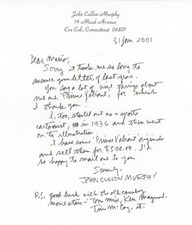 John Cullen Murphy
14 Mead Avenue
Cos Cob, Connecticut 06807
31 Jan 2001
Dear Mario,
Sorry it took me so long to
answer your letter of last year.
You say a lot of nice things about
me and Prince Valiant, for which
I thank you
I, too, started out as a sports
cartoonist, in 1936 and then went
on to illustration.
I have some Prince Valiant originals
and sell them for $500.00. I'd
be happy to mail one to you
Sincerely,
JOHN CULLEN MURPHY
P.S. Good luck with the old cowboy
movie stars - Tom Mix, Ken Maynard,
Tim McCoy, etc.